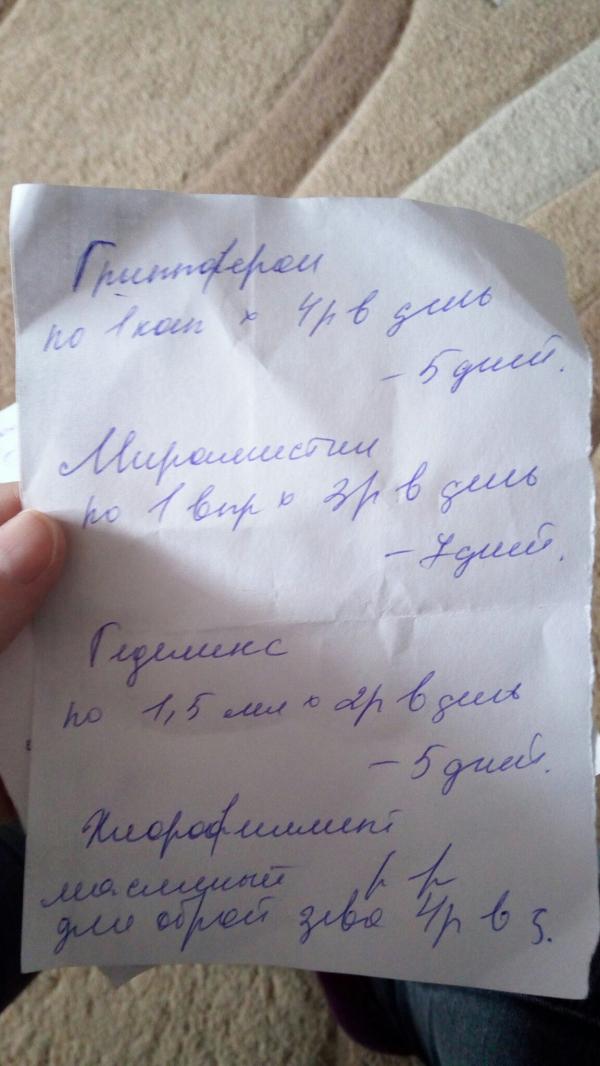 Гриппферон
по 1 кап × 4р в день
– 5 дней.
Мирамистин
по 1 впр × 3р в день
– 7 дней.
Геделикс
по 1,5 мл × 2р в день
– 5 дней.
Хлорофиллипт
масляный р р
для обраб зева 4р в